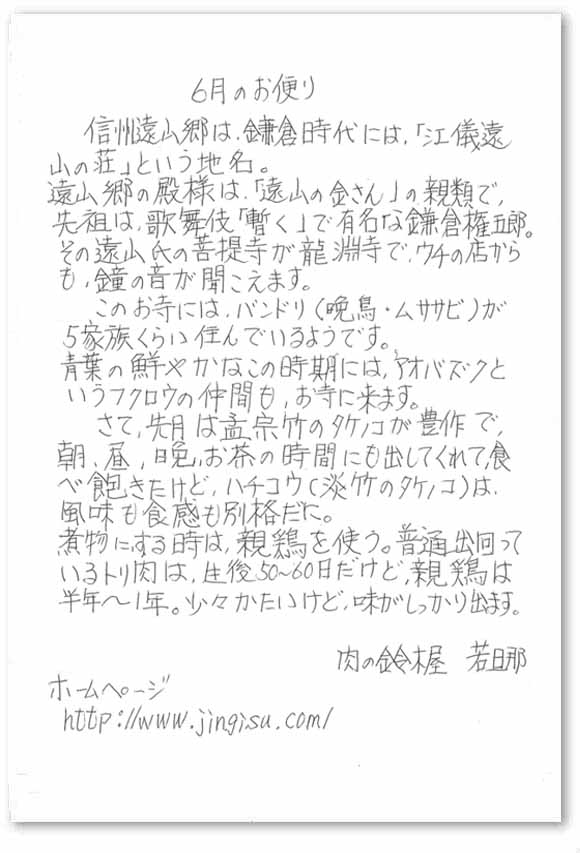 6月のお便り
信州遠山郷は、鎌倉時代には、「江儀遠
山の荘」という地名。
遠山郷の殿様は、「遠山の金さん」の親類で、
先祖は、歌舞伎「暫く」で有名な鎌倉権五郎。
その遠山氏の菩提寺が龍淵寺で、ウチの店から
も、鐘の音が聞こえます。
このお寺には、バンドリ(晩鳥・ムササビ)が
5家族くらい住んでいるようです。
青葉の鮮やかなこの時期には、アオバズクと
いうフクロウの仲間も、お寺に来ます。
さて、先月は孟宗竹のタケノコが豊作で、
朝、昼、晩、お茶の時間にも出してくれて、食
べ飽きたけど、ハチコウ(淡竹のタケノコ)は、
風味も食感も別格だに。
煮物にする時は、親鶏を使う。普通出回って
いるトリ肉は、生後50~60日だけど、親鶏は
半年~1年。少々かたいけど、味がしっかり出ます。
肉の鈴木屋 若旦那
ホームページ
http://www.jingisu.com/